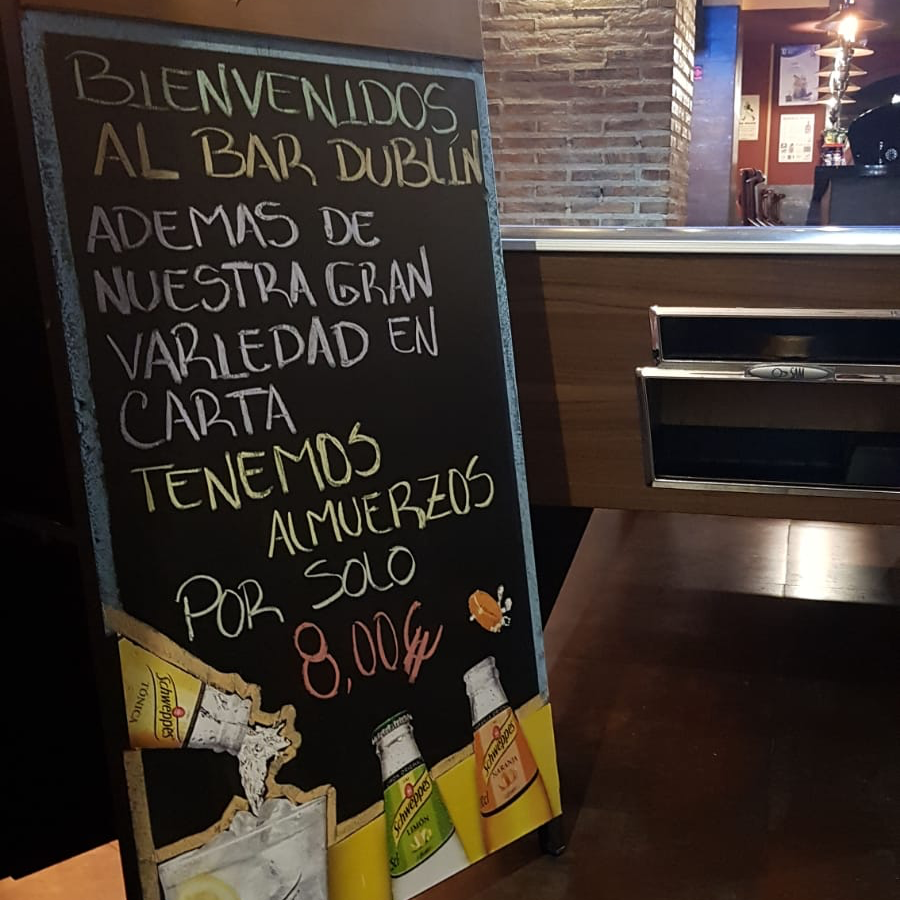 BIENVENIDOS
AL BAR DUBLÍN
ADEMAS DE
NUESTRA GRAN
VARIEDAD EN
CARTA
TENEMOS
ALMUERZOS
POR SOLO
8,00€
Schweppes
TÓNICA
Schweppes
LIMÓN
Schweppes
NARANJA